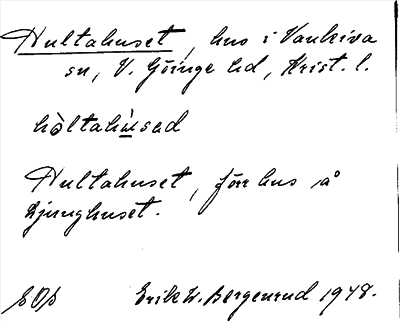 Hultahuset, hus i Vankiva
sn, V. Göinge hd, Krist. l.
hòltahú̱sad
Hultahuset, förr hus å
Ljunghuset.
SOſs Erik W. Bergenrud 1948.